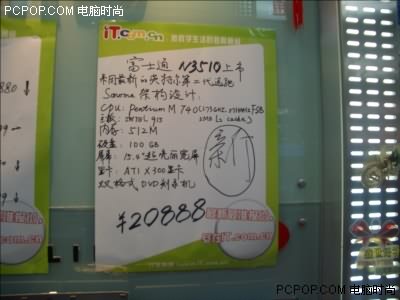 PCPOP.COM 电脑时尚
iT.com.cn
富士通 N3510上市
采用最新的英特尔第二代迅驰
Sonoma 架构设计.
CPU: Pentium M 740 (1.73GHz, 533MHz FSB
2MB L2 cache)
主板: INTEL 915
内存: 512M
硬盘: 100GB
屏幕: 15.4"超亮丽宽屏
显卡: ATI X300显卡
双格式 DVD刻录机
¥20888
iT.com.cn
PCPOP.COM 电脑时尚